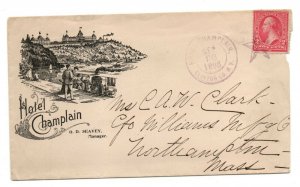 Hotel
Champlain
O. D. SEAVEY,
Manager.
Ms C. A. W. Clark —
C/o Williams M'f'g Co
Northampton
Mass —